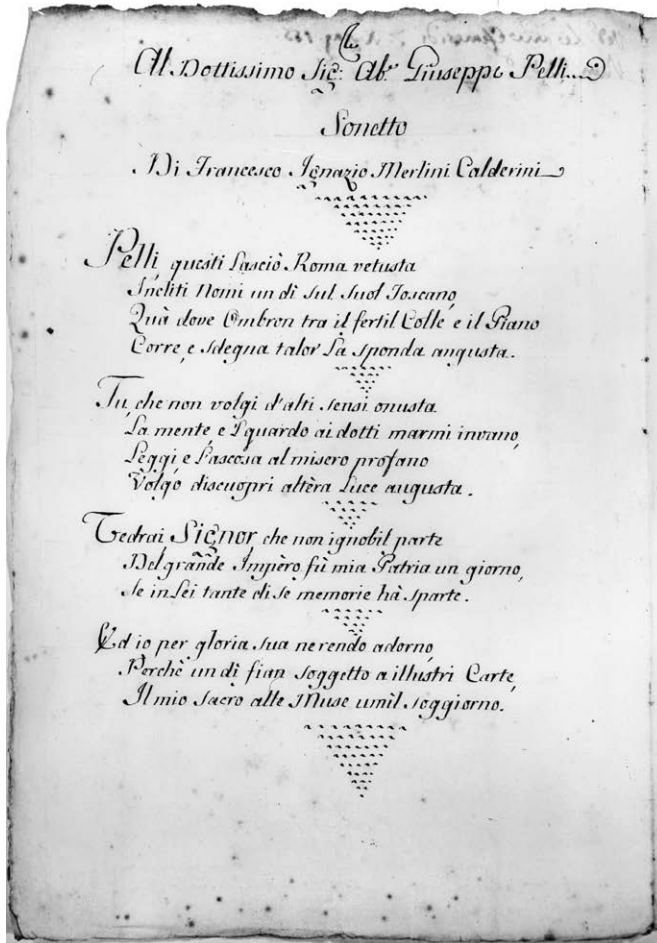 Al Dottissimo Sig: Ab.e Giuseppe Pelli
Sonetto
Di Francesco Ignazio Merlini Calderini
Pelli, questi Lasciò Roma vetusta
Incliti Nomi un dì sul suol Toscano,
Quà dove Ombron tra il fertil Colle e il Piano
Corre, e sdegna talor La sponda angusta.
Tu, che non volgi d'alti sensi onusta
La mente, e Sguardo ai dotti marmi invano,
Leggi e L'ascosa al misero profano
Volgo discuopri altèra Luce augusta.
Vedrai Signor che non ignobil parte
Del grande Impèro fù mia Patria un giorno,
Se in Lei tante di se memorie hà sparte.
Ed io per gloria sua ne rendo adorno,
Perchè un dì fian soggetto a illustri Carte,
Il mio sacro alle Muse umìl soggiorno.